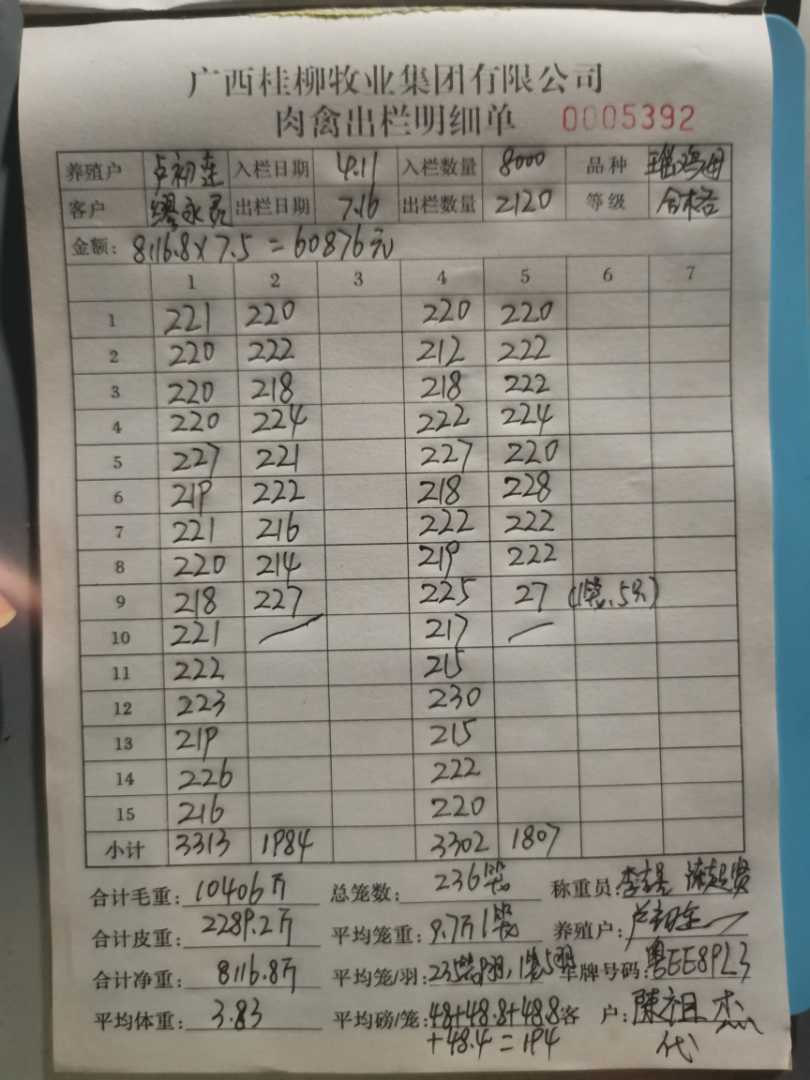 广西桂柳牧业集团有限公司
肉禽出栏明细单 0005392
养殖户 卢初 入栏日期 4.11 入栏数量 8000 品种 瑶鸡母
客户 永 出栏日期 7.16 出栏数量 2120 等级 合格
金额: 8116.8×7.5=60876元
1 2 3 4 5 6 7
1 221 220 220 220
2 220 222 212 222
3 220 218 218 222
4 220 224 222 224
5 227 221 227 220
6 219 222 218 228
7 221 216 222 222
8 220 214 219 222
9 218 227 225 27 (1笼.5只)
10 221 — 217 —
11 222 215
12 223 230
13 219 215
14 226 222
15 216 220
小计 3313 1984 3302 1807
合计毛重: 10406斤 总笼数: 236笼 称重员:
合计皮重: 2289.2斤 平均笼重: 9.7斤1笼 养殖户: 卢初
合计净重: 8116.8斤 平均笼/羽: 235笼9羽,1笼5羽 车牌号码: 粤EE89L3
平均体重: 3.83 平均磅/笼: 48+48.8+48.8 客户: 陳祖杰
+48.4=194 代